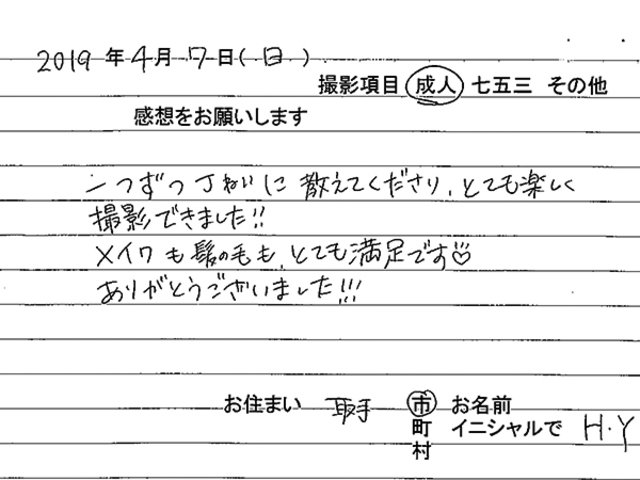 2019年4月7日(日)
撮影項目 成人 七五三 その他
感想をお願いします
一つずつ丁ねいに教えてくださり、とても楽しく
撮影できました!!
メイクも髪の毛も、とても満足です♡
ありがとうございました!!!
お住まい 取手 市 お名前
町 イニシャルで H.Y
村